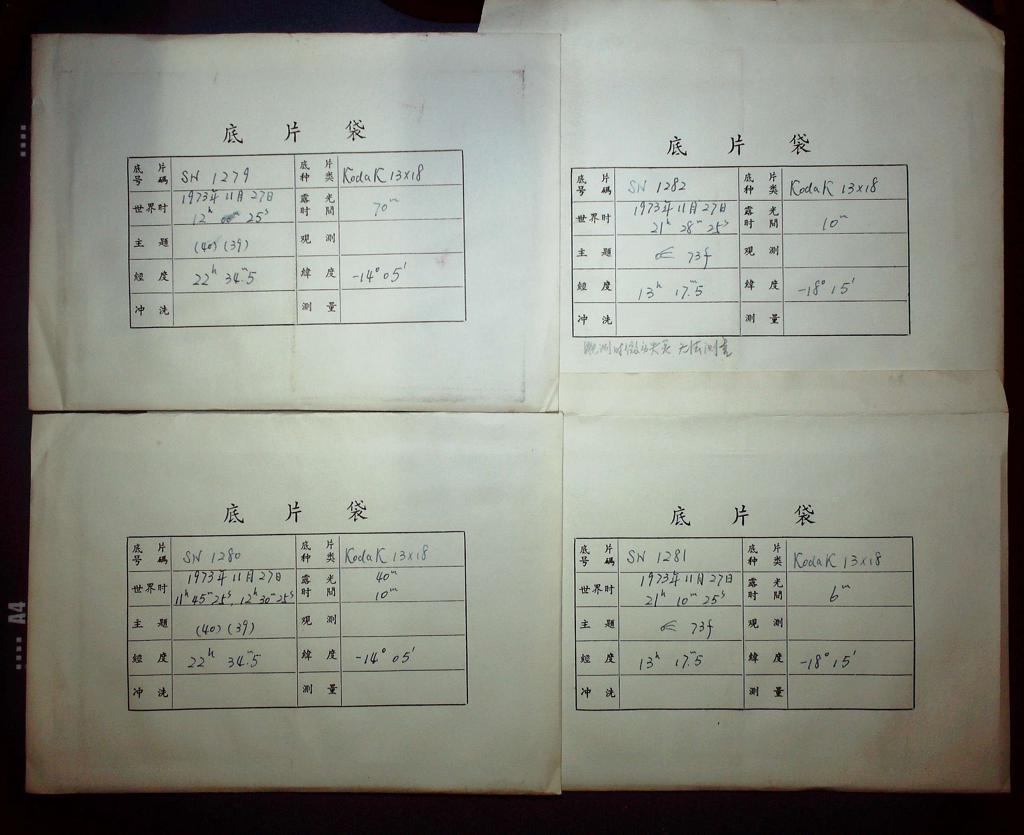 底片袋
底片号碼 SN 1279 底片种类 Kodak 13×18
世界时 1973年11月27日 12ʰ 25ˢ 露光时間 70ᵐ
主題 (40) (39) 观測
經度 22ʰ 34ᵐ.5 緯度 -14° 05′
冲洗 測量
底片袋
底片号碼 SN 1282 底片种类 Kodak 13×18
世界时 1973年11月27日 21ʰ 28ᵐ 25ˢ 露光时間 10ᵐ
主題 73f 观測
經度 13ʰ 17ᵐ.5 緯度 -18° 15′
冲洗 測量
观測时 无法測量
底片袋
底片号碼 SN 1280 底片种类 Kodak 13×18
世界时 1973年11月27日 露光时間 40ᵐ
11ʰ 45ᵐ 25ˢ, 12ʰ 30ᵐ 25ˢ 10ᵐ
主題 (40) (39) 观測
經度 22ʰ 34ᵐ.5 緯度 -14° 05′
冲洗 測量
底片袋
底片号碼 SN 1281 底片种类 Kodak 13×18
世界时 1973年11月27日 21ʰ 10ᵐ 25ˢ 露光时間 6ᵐ
主題 73f 观測
經度 13ʰ 17ᵐ.5 緯度 -18° 15′
冲洗 測量
A4